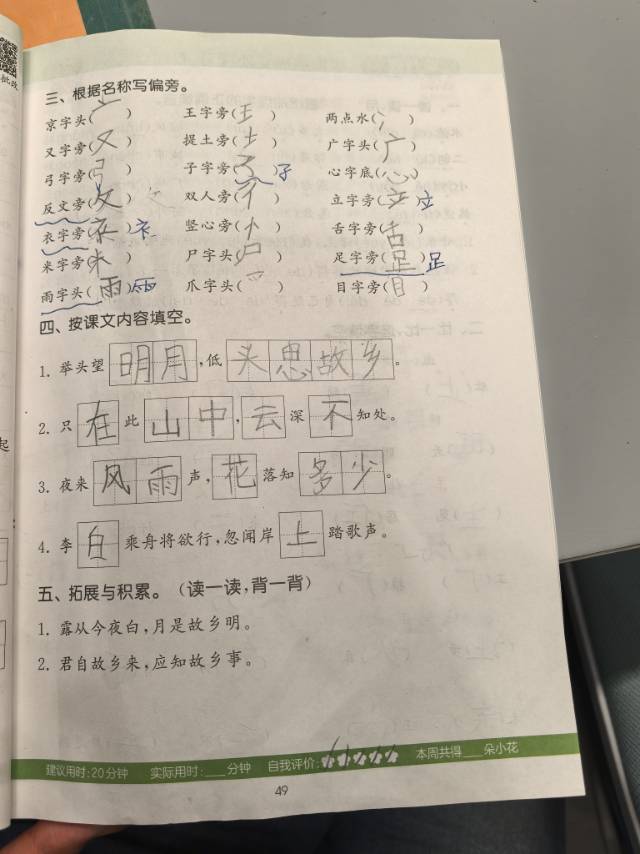 批改
三、根据名称写偏旁。
京字头(亠) 王字旁(王) 两点水(冫)
又字旁(又) 提土旁(土) 广字头(广)
弓字旁(弓) 子字旁(子)子 心字底(心)
反文旁(攵) 双人旁(彳) 立字旁(立)立
衣字旁(衣)衤 竖心旁(忄) 舌字旁(舌)
米字旁(米) 尸字头(尸) 足字旁(足)𧾷
雨字头(雨)⻗ 爪字头(爫) 目字旁(目)
四、按课文内容填空。
1. 举头望明月,低头思故乡。
2. 只在此山中,云深不知处。
3. 夜来风雨声,花落知多少。
4. 李白乘舟将欲行,忽闻岸上踏歌声。
五、拓展与积累。(读一读,背一背)
1. 露从今夜白,月是故乡明。
2. 君自故乡来,应知故乡事。
建议用时:20分钟 实际用时:___分钟 自我评价: 本周共得___朵小花
49
起